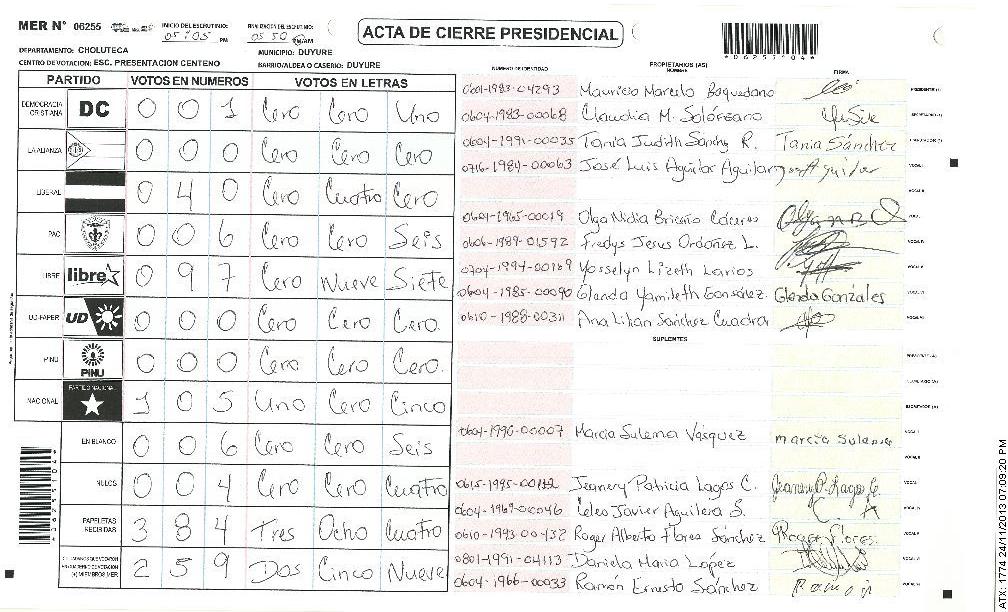 MER N° 06255 INICIO DEL ESCRUTINIO: 05:05 PM FINALIZACIÓN DEL ESCRUTINIO: 05 50 PM/AM
ACTA DE CIERRE PRESIDENCIAL
*06255104*
DEPARTAMENTO: CHOLUTECA MUNICIPIO: DUYURE
CENTRO DE VOTACION: ESC. PRESENTACION CENTENO BARRIO/ALDEA O CASERIO: DUYURE
PARTIDO VOTOS EN NUMEROS VOTOS EN LETRAS
DEMOCRACIA CRISTIANA DC 0 0 1 Cero Cero Uno
LA ALIANZA 0 0 0 Cero Cero Cero
LIBERAL 0 4 0 Cero Cuatro Cero
PAC 0 0 6 Cero Cero Seis
LIBRE libre 0 9 7 Cero Nueve Siete
UD-FAPER UD 0 0 0 Cero Cero Cero
PINU PINU 0 0 0 Cero Cero Cero
NACIONAL PARTIDO NACIONAL 1 0 5 Uno Cero Cinco
EN BLANCO 0 0 6 Cero Cero Seis
NULOS 0 0 4 Cero Cero Cuatro
PAPELETAS RECIBIDAS 3 8 4 Tres Ocho Cuatro
CIUDADANOS QUE VOTARON (+) MIEMBROS MER 2 5 9 Dos Cinco Nueve
NUMERO DE IDENTIDAD PROPIETARIOS (AS) NOMBRE FIRMA
0601-1983-04293 Mauricio Marcelo Baquedano PRESIDENTE (A)
0604-1983-00068 Claudia M. Solórzano SECRETARIO (A)
0604-1991-00035 Tania Judith Sánchz R. Tania Sánchez ESCRUTADOR (A)
0716-1984-00063 José Luis Aguilar Aguilar VOCAL I
VOCAL II
0604-1965-00019 Olga Nidia Briceño Cáceres
0606-1989-01592 Fredys Jesus Ordoñez L. VOCAL IV
0704-1994-00169 Yosselyn Lizeth Larios VOCAL V
0604-1985-00090 Glenda Yamileth González Glenda Gonzales VOCAL VI
0610-1988-00311 Ana Lilian Sánchez Cuadra
SUPLENTES
0604-1996-00007 Marcia Sulema Vásquez marcia Sulema
0615-1995-00112 Jeanery Patricia Lagos C. Jeanery P. Lagos C.
0604-1969-00046 Celeo Javier Aguilera S. C A
0610-1993-00432 Roger Alberto Flores Sánchez Roger Flores
0801-1991-04113 Daniela Maria López
0604-1966-00033 Ramón Ernesto Sánchez Ramon
*06255104*
ATX: 1774 24/11/2013 07:09:20 PM